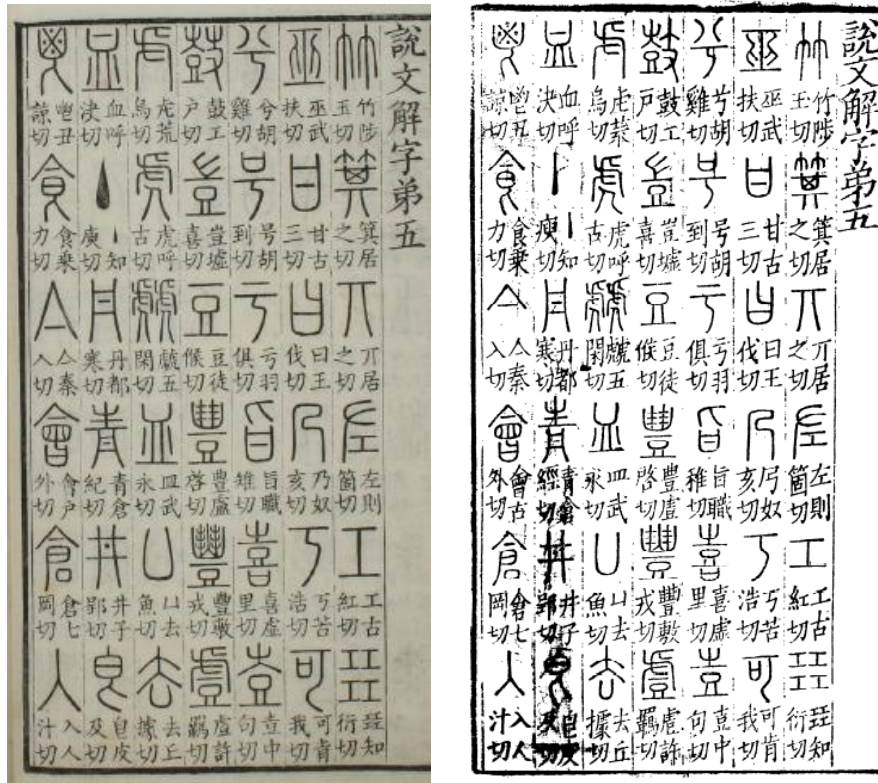 說文解字弟五
竹 竹陟玉切 箕 箕居之切 丌 丌居之切 左 左則箇切 工 工古紅切 㠭 㠭知衍切
巫 巫武扶切 甘 甘古三切 曰 曰王伐切 乃 乃奴亥切 丂 丂苦浩切 可 可肯我切
兮 兮胡雞切 号 号胡到切 亏 亏羽俱切 旨 旨職雉切 喜 喜虛里切 壴 壴中句切
鼓 鼓工户切 豈 豈墟喜切 豆 豆徒候切 豊 豊盧啓切 豐 豐敷戎切 䖒 䖒許羈切
虍 虍荒烏切 虎 虎呼古切 虤 虤五閑切 皿 皿武永切 凵 凵去魚切 去 去丘據切
血 血呼決切 丶 丶知庾切 丹 丹都寒切 青 青倉紀切 井 井子郢切 皀 皀皮及切
鬯 鬯丑諒切 食 食乗力切 亼 亼秦入切 會 會户外切 倉 倉七岡切 入 入人汁切
說文解字弟五
竹 竹陟玉切 箕 箕居之切 丌 丌居之切 左 左則箇切 工 工古紅切 㠭 㠭知衍切
巫 巫武扶切 甘 甘古三切 曰 曰王伐切 乃 奴亥切 丂 丂苦浩切 可 可肯我切
兮 兮胡雞切 号 号胡到切 亏 亏羽俱切 旨 旨職稚切 喜 喜虛里切 壴 壴中句切
鼓 鼓工户切 豈 豈墟喜切 豆 豆徒候切 豊 豊盧啓切 豐 豐敷戎切 䖒 䖒許羈切
虍 虍荒烏切 虎 虎呼古切 虤 虤五閑切 皿 皿武永切 凵 凵去魚切 去 去丘據切
血 血呼決切 丶 丶知庾切 丹 丹都寒切 青 青倉經切 井 井子郢切 皀 皀皮及切
鬯 鬯丑諒切 食 食乗力切 亼 亼秦入切 會 會古外切 倉 倉七岡切 入 入人汁切